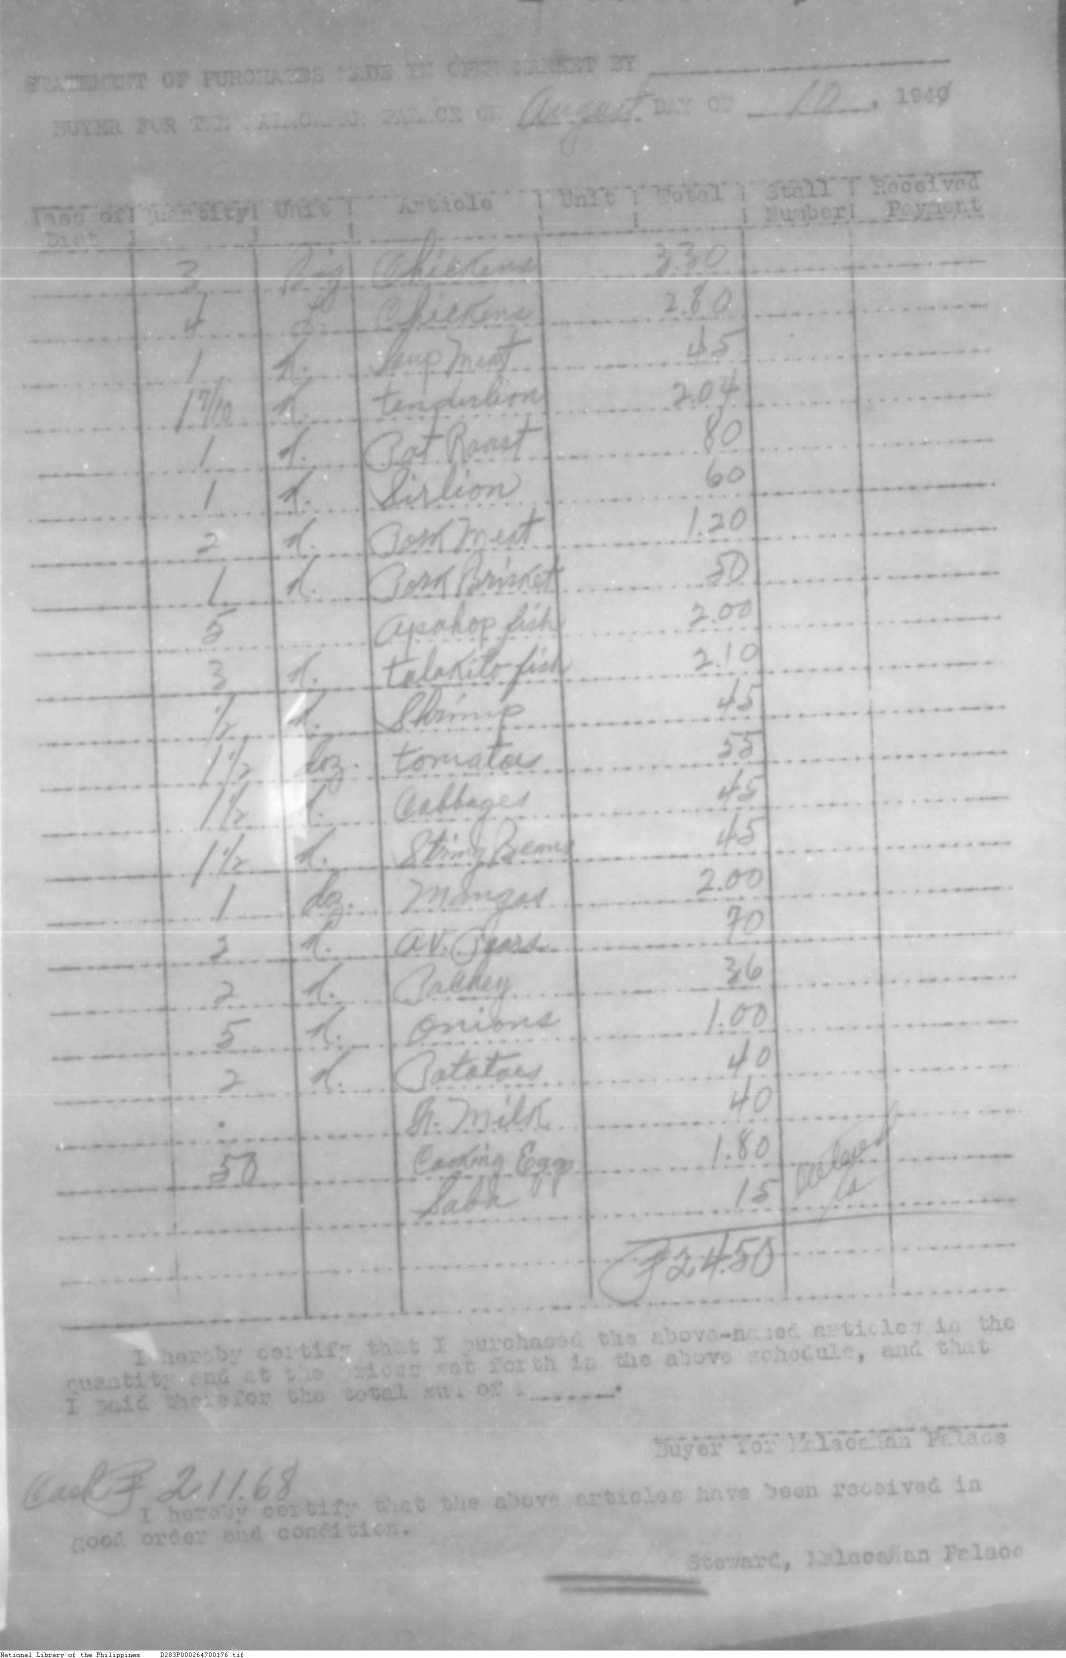 STATEMENT OF PURCHASES MADE IN OPEN MARKET BY
BUYER FOR THE MALACAÑAN PALACE ON August DAY OF 10, 1940
Quantity Unit Article Unit Total Stall Number Received Payment
3 Big Chickens 3.30
4 Chickens 2.80
1 k. Soup Meat 45
1 7/10 k. tenderlion 2.04
1 k. Pot Roast 80
1 k. Sirlion 60
2 k. Pork Meat 1.20
1 k. Pork Brisket 50
5 apahop fish 2.00
3 k. talakito fish 2.10
1/2 k. Shrimp 45
1 1/2 doz. tomatoes 55
1 1/2 k. Cabbages 45
1 1/2 k. String Beans 45
1 doz. Mangos 2.00
2 k. av. Pears 70
2 k. 36
5 k. Onions 1.00
2 k. Potatoes 40
Milk 40
50 Cooking Eggs 1.80
Saba 15
₱24.50
I hereby certify that I purchased the above-named articles in the
quantity and at the prices set forth in the above schedule, and that
I paid therefor the total sum of
Buyer for Malacañan Palace
Cash ₱ 211.68
I hereby certify that the above articles have been received in
good order and condition.
Steward, Malacañan Palace
National Library of the Philippines D283P000264700176.tif